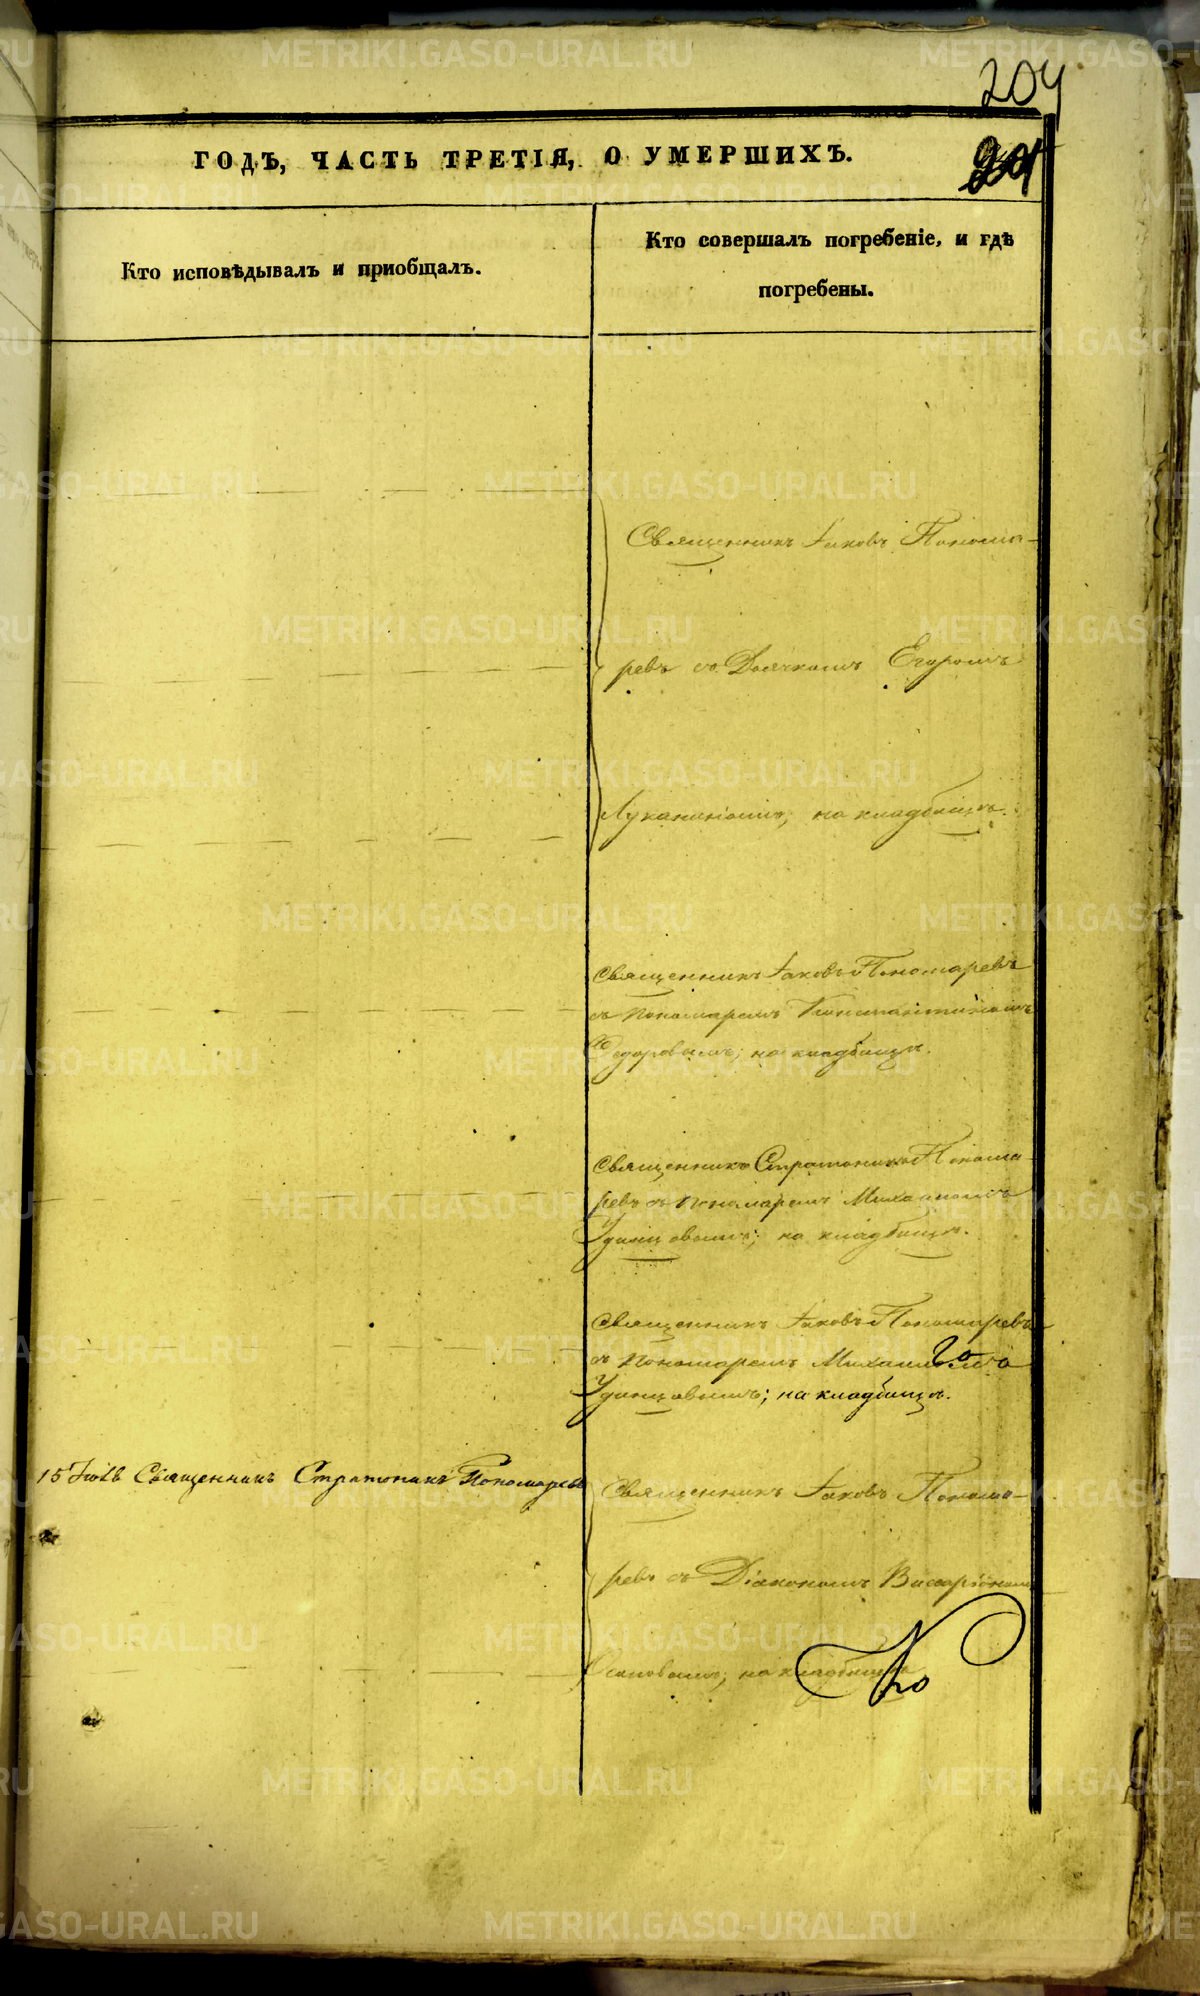 204
ГОДЪ, ЧАСТЬ ТРЕТІЯ, О УМЕРШИХЪ.
Кто исповѣдывалъ и приобщалъ.
Кто совершалъ погребеніе, и гдѣ
погребены.
Священникъ Іаковъ Понома-
ревъ съ Дьячкомъ Егоромъ
Луканинымъ; на кладбищѣ.
Священникъ Іаковъ Пономаревъ
съ пономаремъ Константиномъ
Федоровымъ; на кладбищѣ.
Священникъ Стратоникъ Понома-
ревъ съ пономаремъ Михаиломъ
Удинцовымъ; на кладбищѣ.
Священникъ Іаковъ Пономаревъ
съ пономаремъ Михаиломъ
Удинцовымъ; на кладбищѣ.
15 Священникъ Стратоникъ Пономаревъ
Священникъ Іаковъ Понома-
ревъ съ Діакономъ Виссаріономъ
на кладбищѣ
METRIKI.GASO-URAL.RU